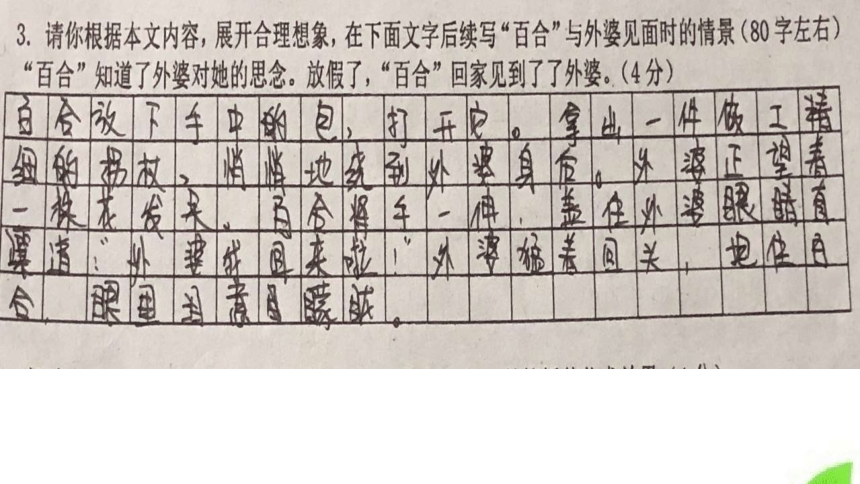 3. 请你根据本文内容，展开合理想象，在下面文字后续写“百合”与外婆见面时的情景（80字左右）
“百合”知道了外婆对她的思念。放假了，“百合”回家见到了了外婆。（4分）
百合放下手中的包，打开它。拿出一件做工精
细的拐杖，悄悄地绕到外婆身后。外婆正望着
一株花发呆。百合将手一伸，盖住外婆眼睛
道：“外婆我回来啦！”外婆猛着回头，抱住百
合，眼里 朦胧。